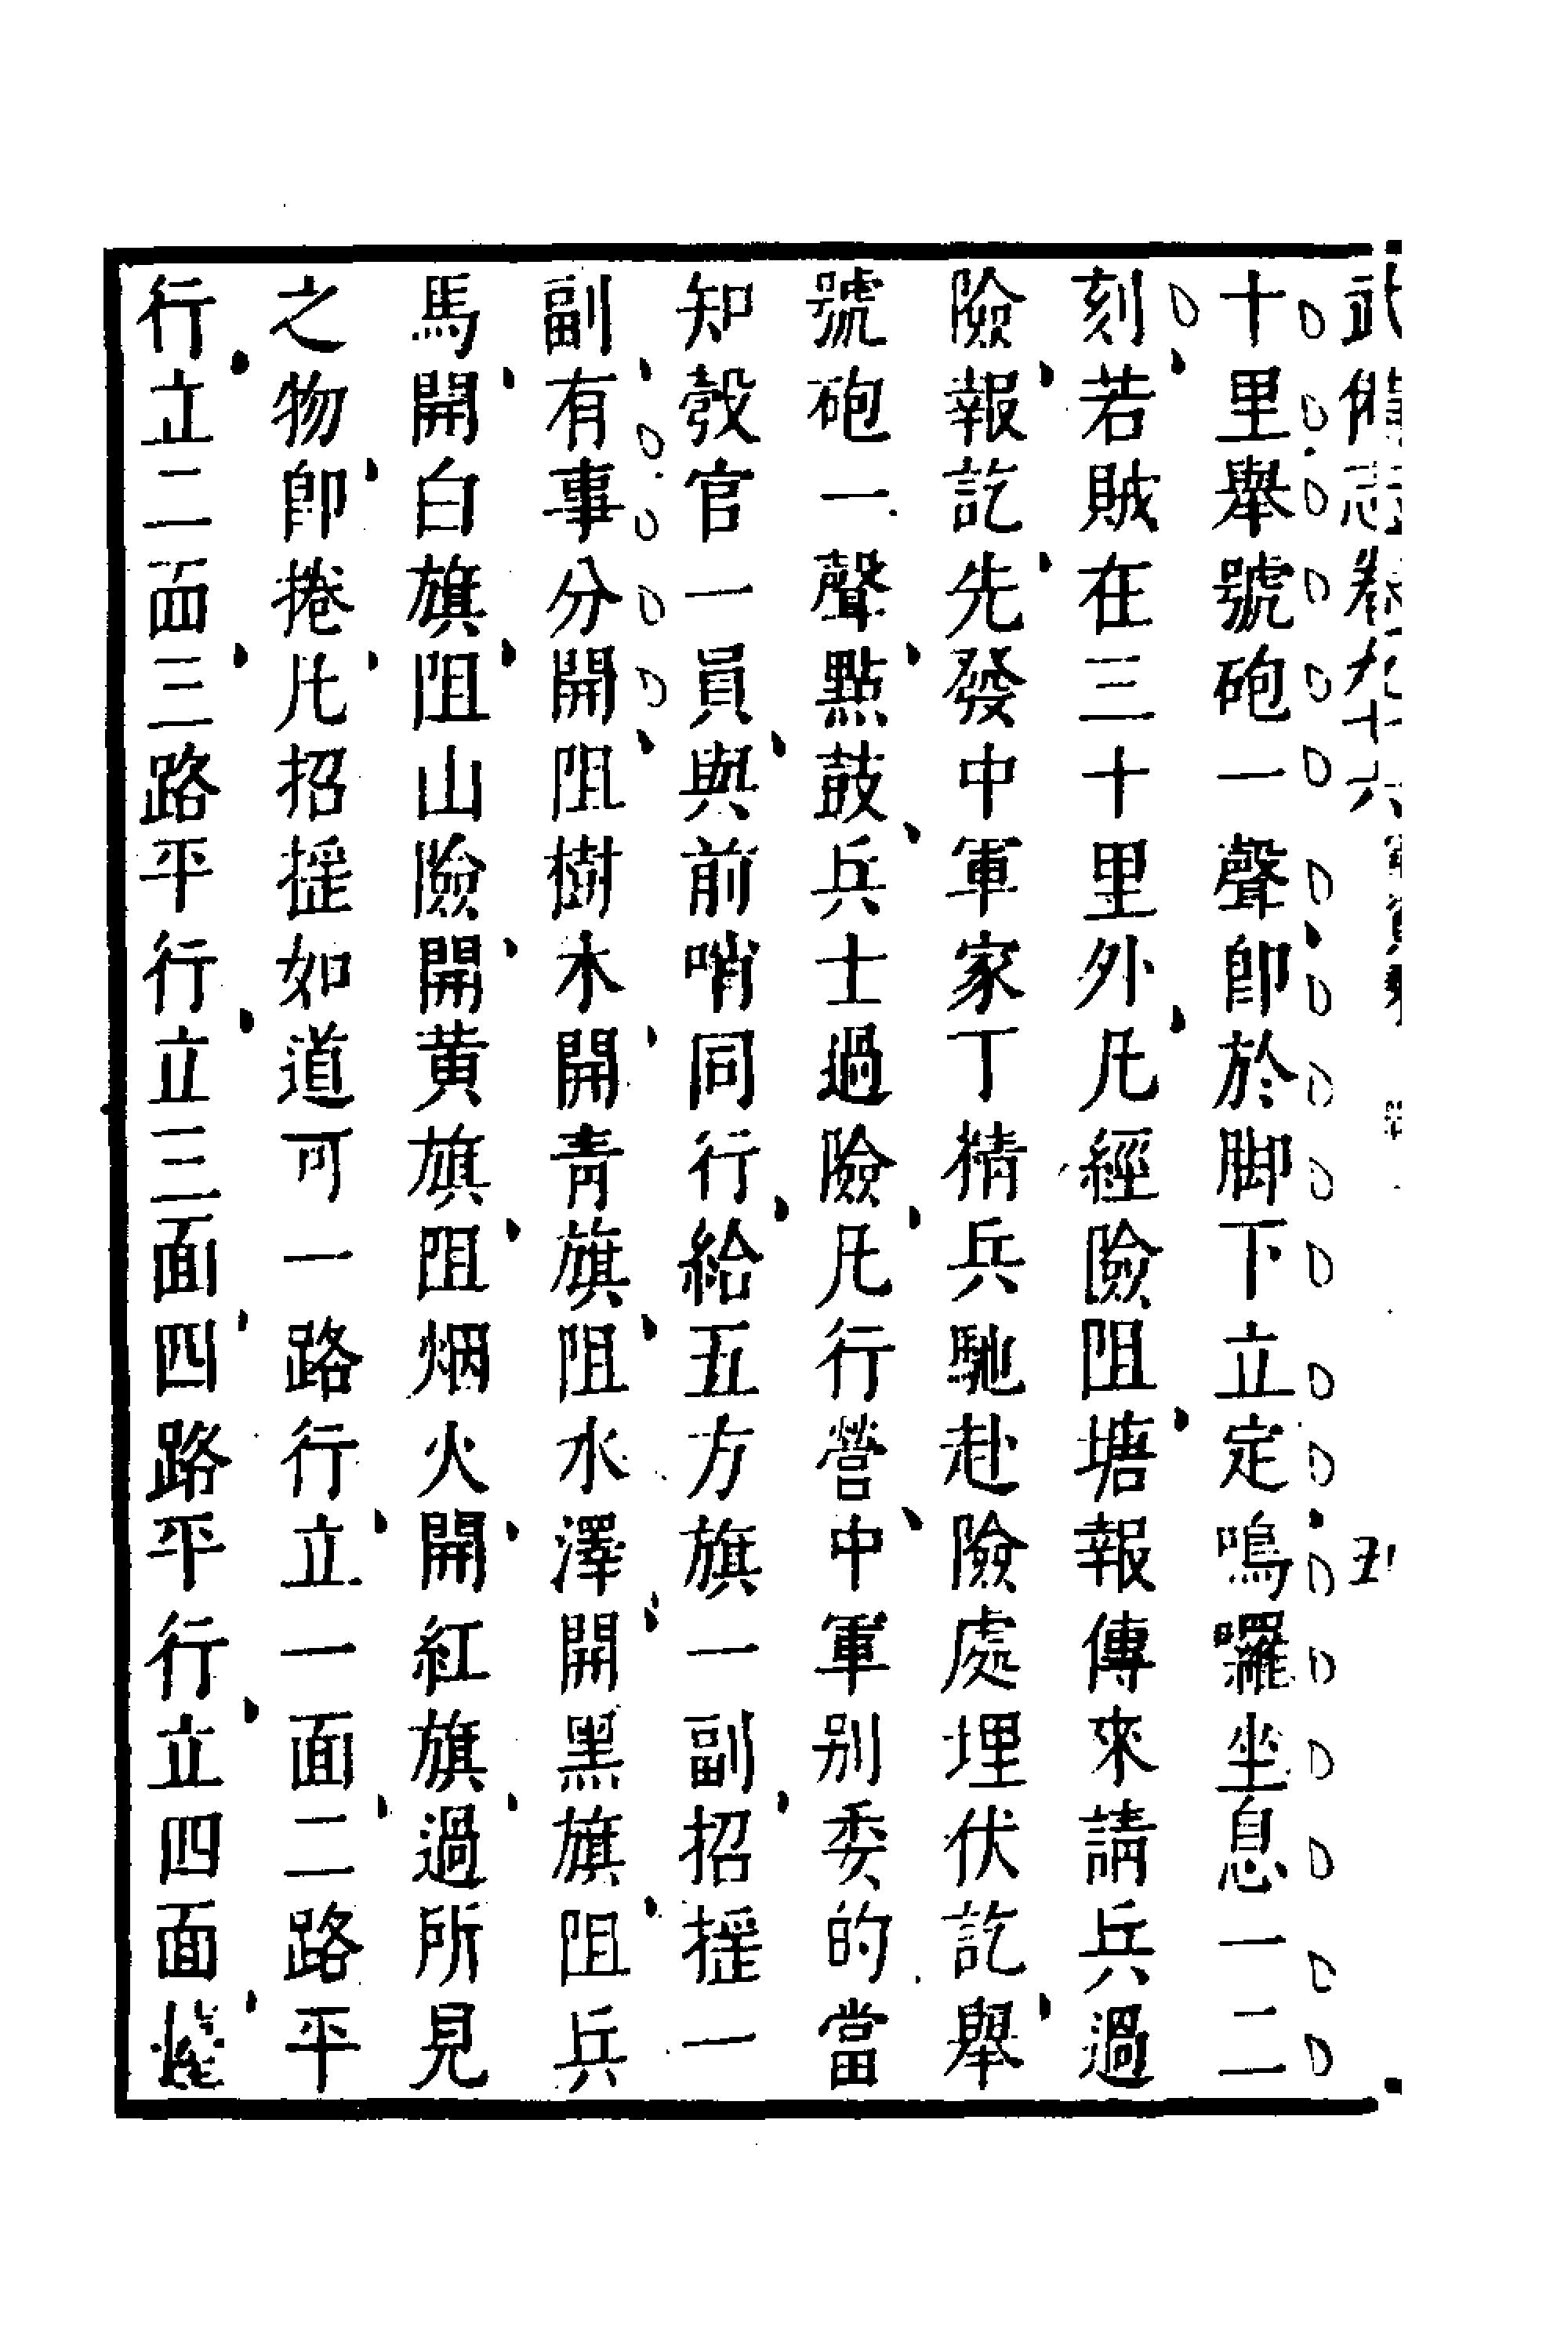 武備志卷九十六
五
十里舉號砲一聲卽於脚下立定鳴囉坐息一二
刻若賊在三十里外凡經險阻塘報傳來請兵過
險報訖先發中軍家丁精兵馳赴險處埋伏訖舉
號砲一聲點鼓兵士過險凡行營中軍别委的當
知彀官一員與前哨同行給五方旗一副招摇一
副有事分開阻樹木開青旗阻水澤開黑旗阻兵
馬開白旗阻山險開黄旗阻烟火開紅旗過所見
之物卽捲凡招摇如道可一路行立一面二路平
行立二面三路平行立三面四路平行立四面